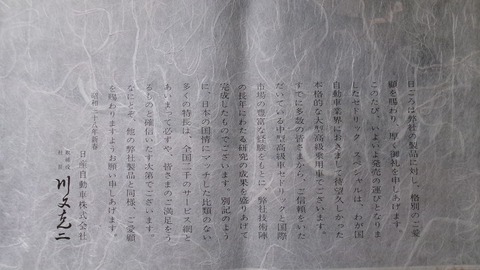 日ごろは弊社の製品に対し、格別のご愛
顧を賜わり、厚く御礼を申しあげます。
このたび、いよいよ発売の運びとなりま
したセドリック スペシャルは、わが国
自動車業界におきまして待望久しかった
本格的な大型高級乗用車でございます。
すでに多数の皆さまから、ご信頼をいた
だいている中型高級車セドリックと国際
市場の豊富な経験をもとに、弊社技術陣
の長年にわたる研究の成果を盛りあげて
完成したものでございます。別記のよう
に、日本の国情にマッチした比類のない
多くの特長は、全国二千のサービス網と
あいまって必ずや、皆さまのご満足をう
るものと確信いたす次第でございます
なにとぞ、他の弊社製品と同様、ご愛顧
を賜わりますようお願い申しあげます。
昭和三十八年新春
日産自動車株式会社
取締役
社長
川又克二